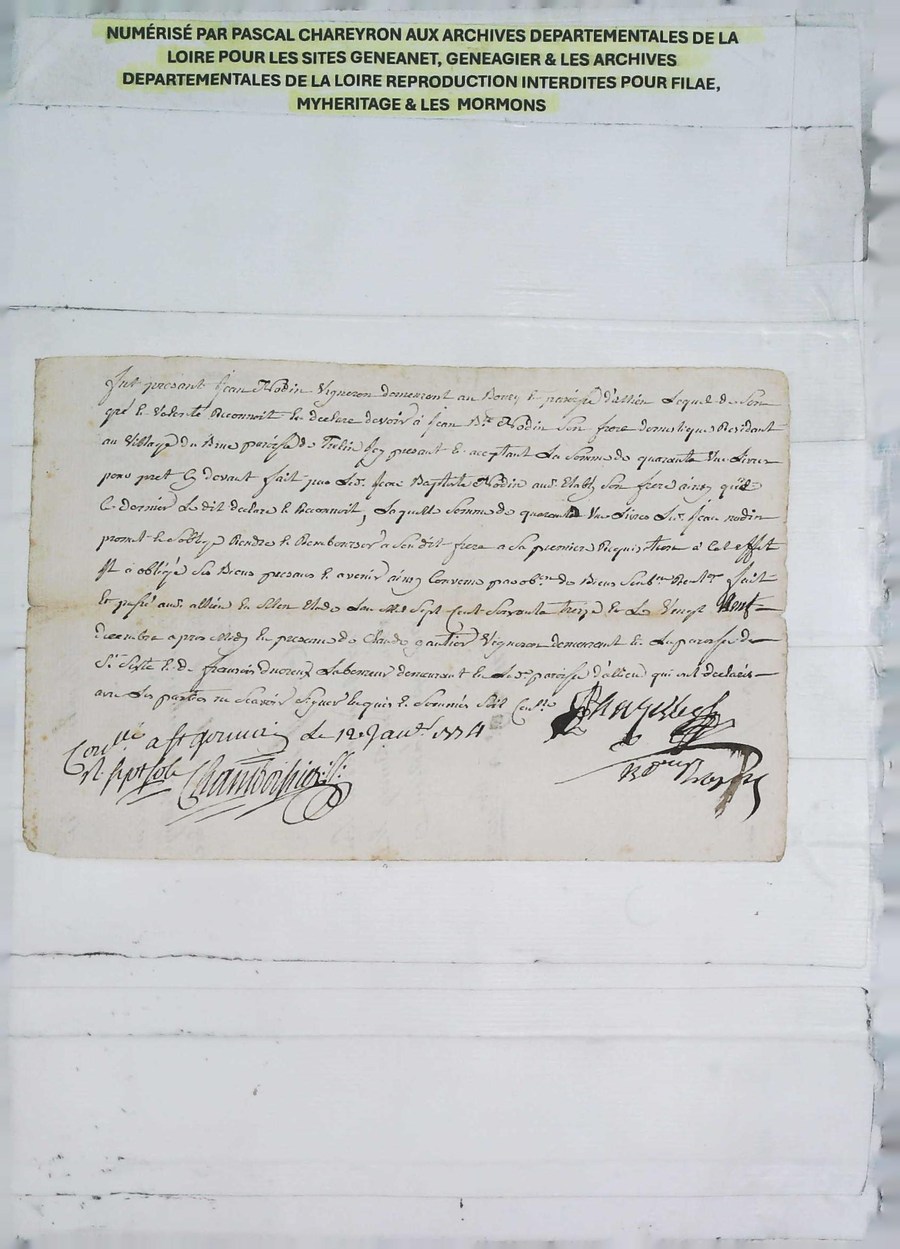 NUMÉRISÉ PAR PASCAL CHAREYRON AUX ARCHIVES DEPARTEMENTALES DE LA
LOIRE POUR LES SITES GENEANET, GENEAGIER & LES ARCHIVES
DEPARTEMENTALES DE LA LOIRE REPRODUCTION INTERDITES POUR FILAE,
MYHERITAGE & LES MORMONS
fut presant Jean Nodin Vigneron demeurant au Bourg & paroisse d'allieu Lequel de Son
gré & Volonté Reconnoit & declare devoir à Jean Bte Nodin Son frere domestique Residant
au Village du paroisse de Icy presant & aceptant La Somme de quarante Vne Livres
pour pret Cy devant fait par Led. Jean Baptiste Nodin aud. Son frere ainsy que
Ce dernier Le dit declare & Reconnoit, Laquelle Somme de quarente Vne Livres Led. Jean nodin
promet & Soblige Rendre & Rembourser à Son dit frere a Sa premiere Requisition à Cet effet
Il a obligé Ses Biens presans & avenir ainsy Convenu par obon. de Biens fait
Et passé aud. allieu en Letude Lan Mil Sept Cent Soixante treize & Le Vingt Neuf
decembre apres Midy En presence de Claude gautier Vigneron demeurant en La paroisse de
St. Sixte & de francois ducreux Laboureur demeurant en Lad. paroisse d'allieu qui ont declarés
avec Les parties ne Scavoir Signer Enquis & Sommés
Conllé a St Germain Le 12 Janr. 1774
Rt. sept sols